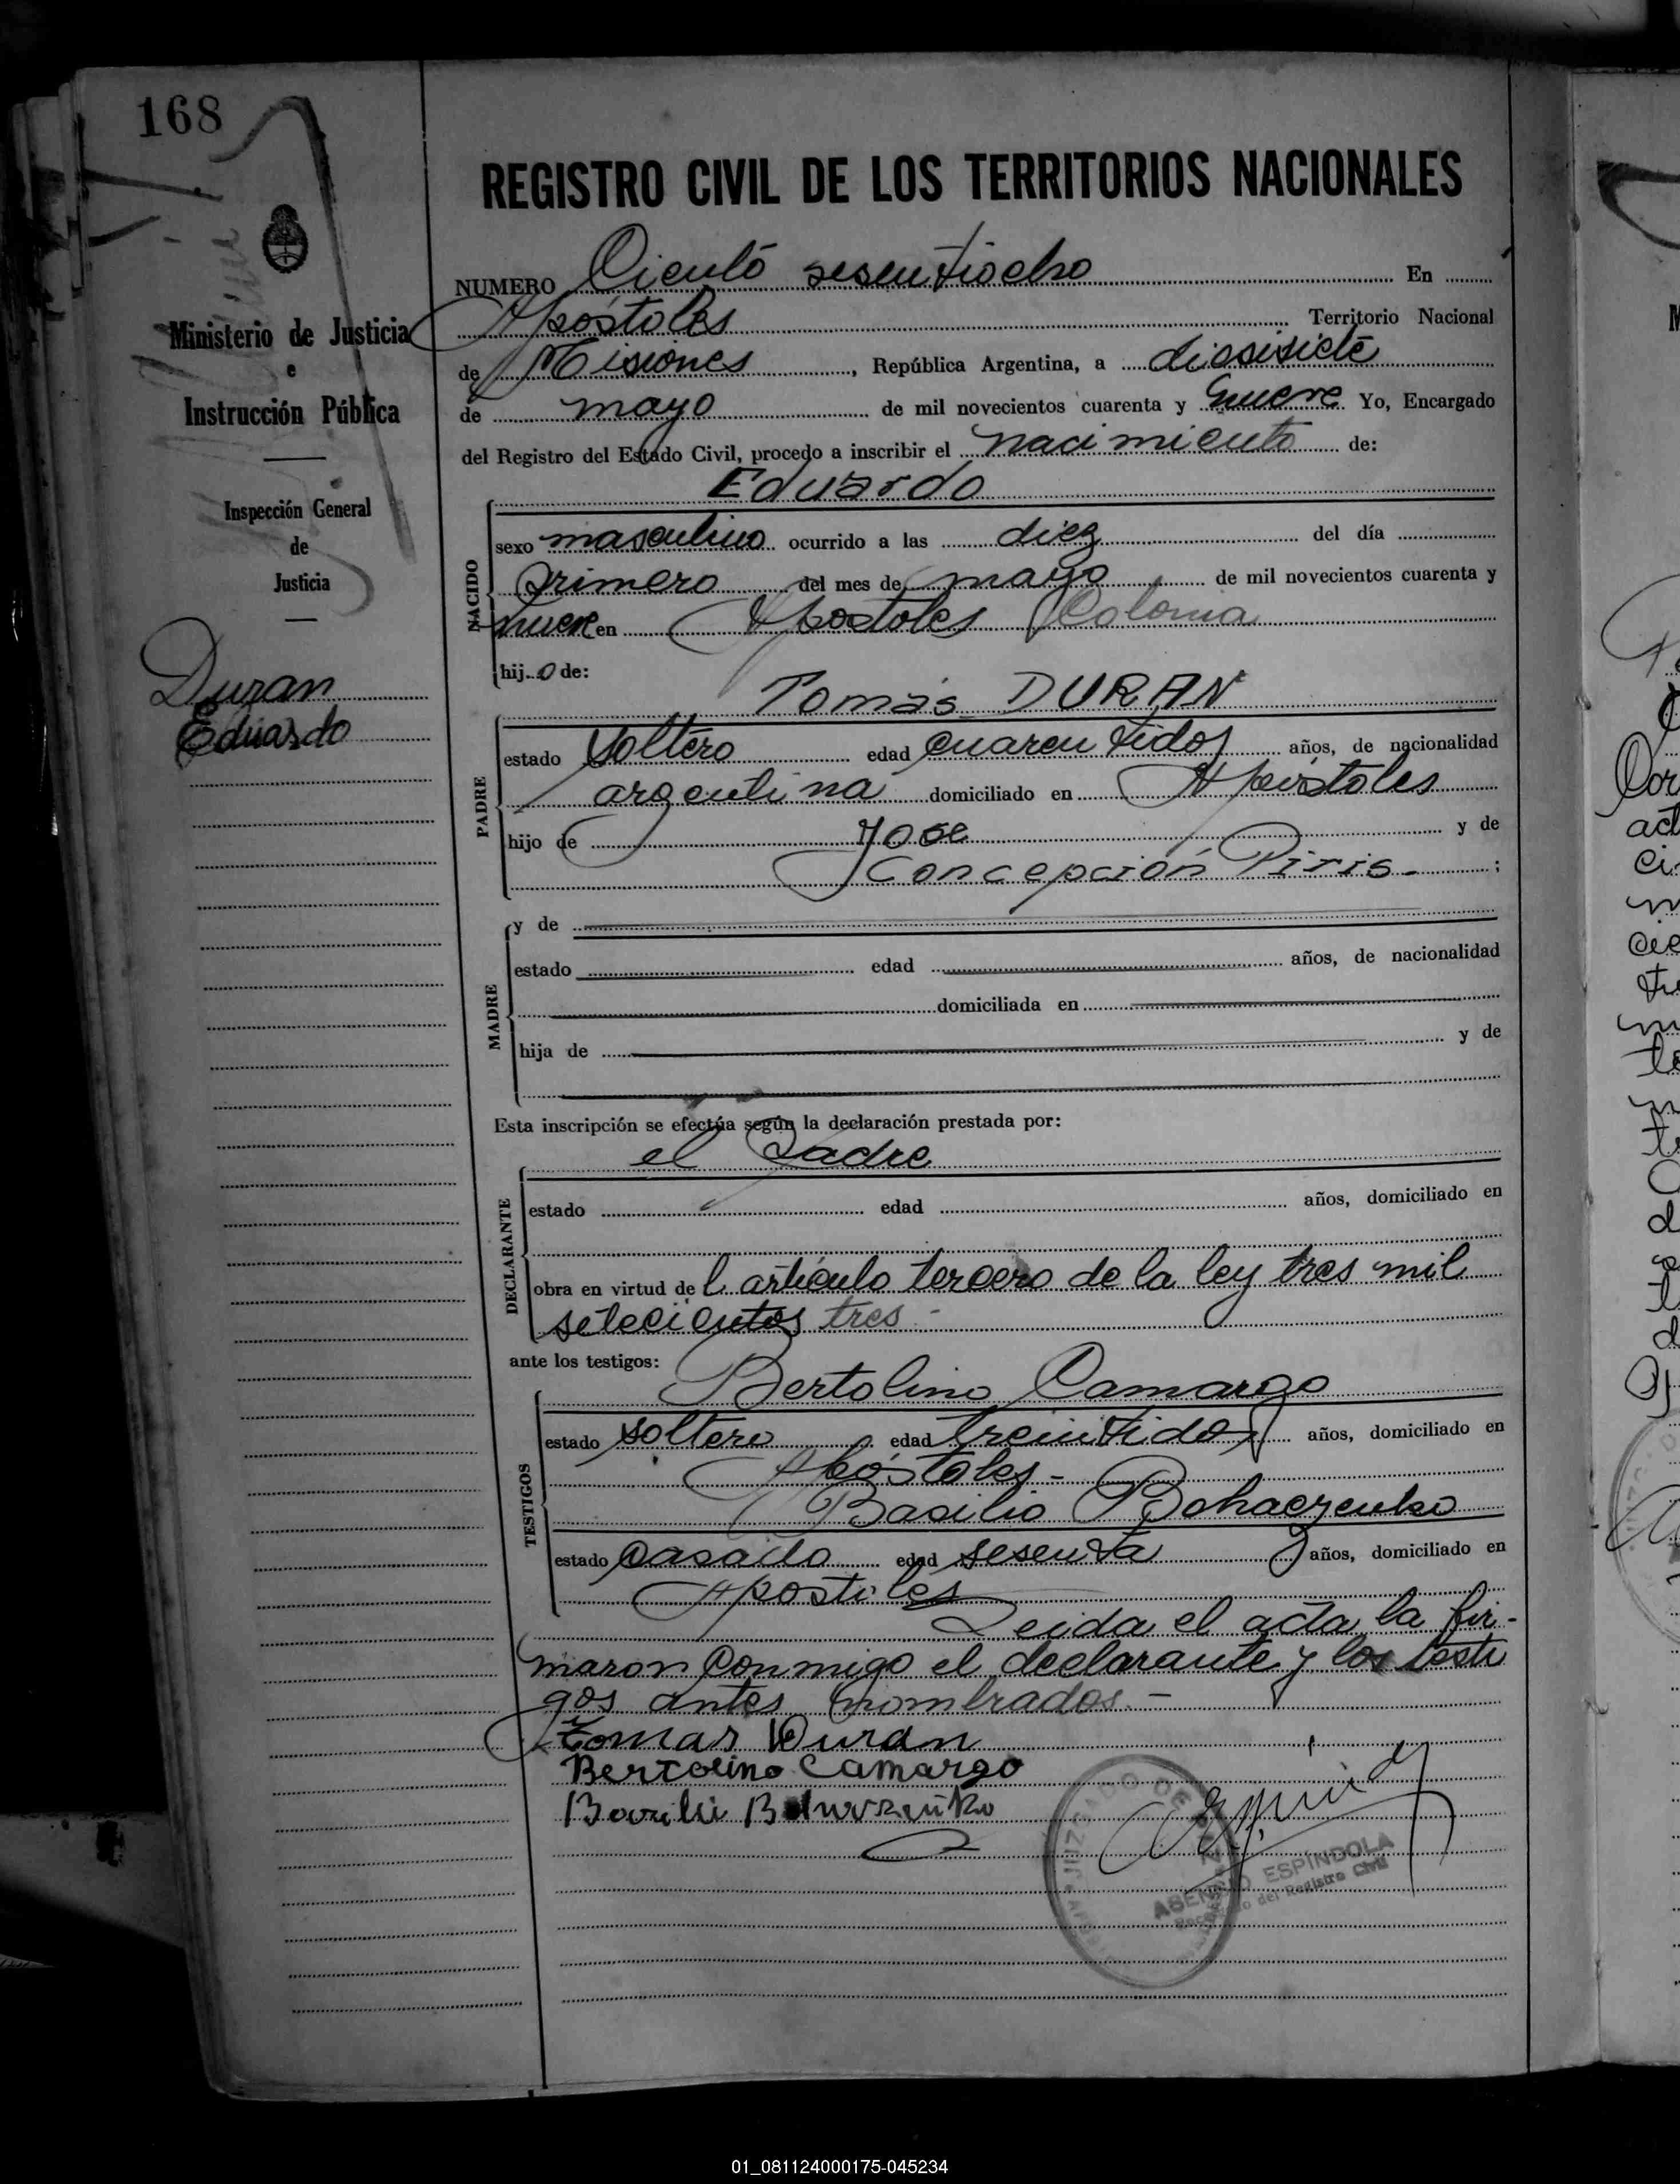 168
REGISTRO CIVIL DE LOS TERRITORIOS NACIONALES
NUMERO Ciento sesentiocho En
Apóstoles Territorio Nacional
de Misiones, República Argentina, a diesisiete
de mayo de mil novecientos cuarenta y nueve Yo, Encargado
del Registro del Estado Civil, procedo a inscribir el nacimiento de:
Eduardo
Ministerio de Justicia
e
Instrucción Pública
Inspección General
de
Justicia
Duran
Eduardo
NACIDO
sexo masculino ocurrido a las diez del día
primero del mes de mayo de mil novecientos cuarenta y
nueve en Apostoles Colonia
hijo de:
Tomás DURAN
PADRE
estado soltero edad cuarentidos años, de nacionalidad
argentina domiciliado en Apóstoles
hijo de Jose y de
Concepción Piris.- ;
MADRE
y de
estado edad años, de nacionalidad
domiciliada en
hija de y de
Esta inscripción se efectúa según la declaración prestada por:
el Padre
DECLARANTE
estado edad años, domiciliado en
obra en virtud del artículo tercero de la ley tres mil
setecientos tres -
ante los testigos:
Bertolino Camargo
TESTIGOS
estado soltero edad treintidos años, domiciliado en
Apóstoles -
Basilio Bohaczenko
estado casado edad sesenta años, domiciliado en
Apostoles
Leida el acta la fir-
maron conmigo el declarante y los testi
gos antes nombrados.-
Tomas Duran
Bertolino Camargo
JUZGADO DE PAZ
ASENCIO ESPÍNDOLA
Encargado del Registro Civil
01_081124000175-045234